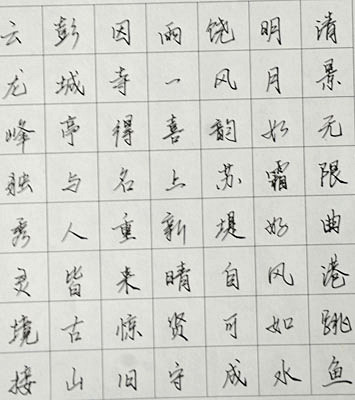 清景无限曲港跳鱼
明月如霜好风如水
饶风韵苏堤自可成
雨一喜上新晴贤守
因寺得名重来惊旧
彭城亭与人皆古山
云龙峰独秀灵境接